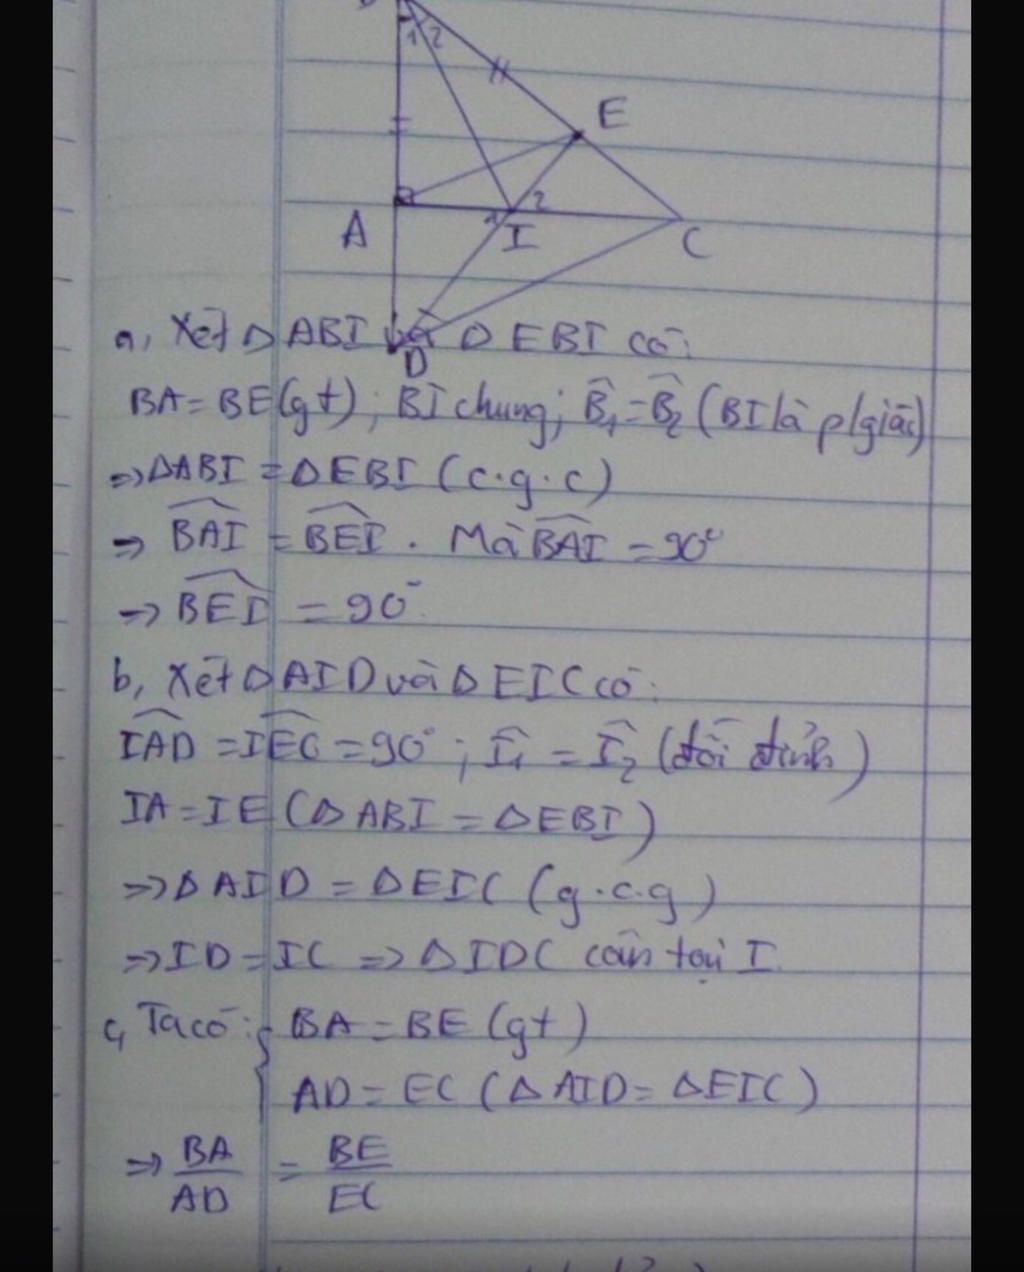 1 2
E
A
1 2
I
C
D
a, Xét Δ ABI và Δ EBI có:
BA = BE (gt); BI chung; B̂₁ = B̂₂ (BI là p/giác)
=> ΔABI = ΔEBI (c.g.c)
=> BAI = BEI. Mà BAI = 90°
=> BEI = 90°.
b, Xét Δ AID và Δ EIC có:
IAD = IEC = 90°; Î₁ = Î₂ (đối đỉnh)
IA = IE (Δ ABI = Δ EBI)
=> Δ AID = Δ EIC (g.c.g)
=> ID = IC => Δ IDC cân tại I.
c, Ta có: { BA = BE (gt)
AD = EC (Δ AID = Δ EIC)
=> BA/AD = BE/EC